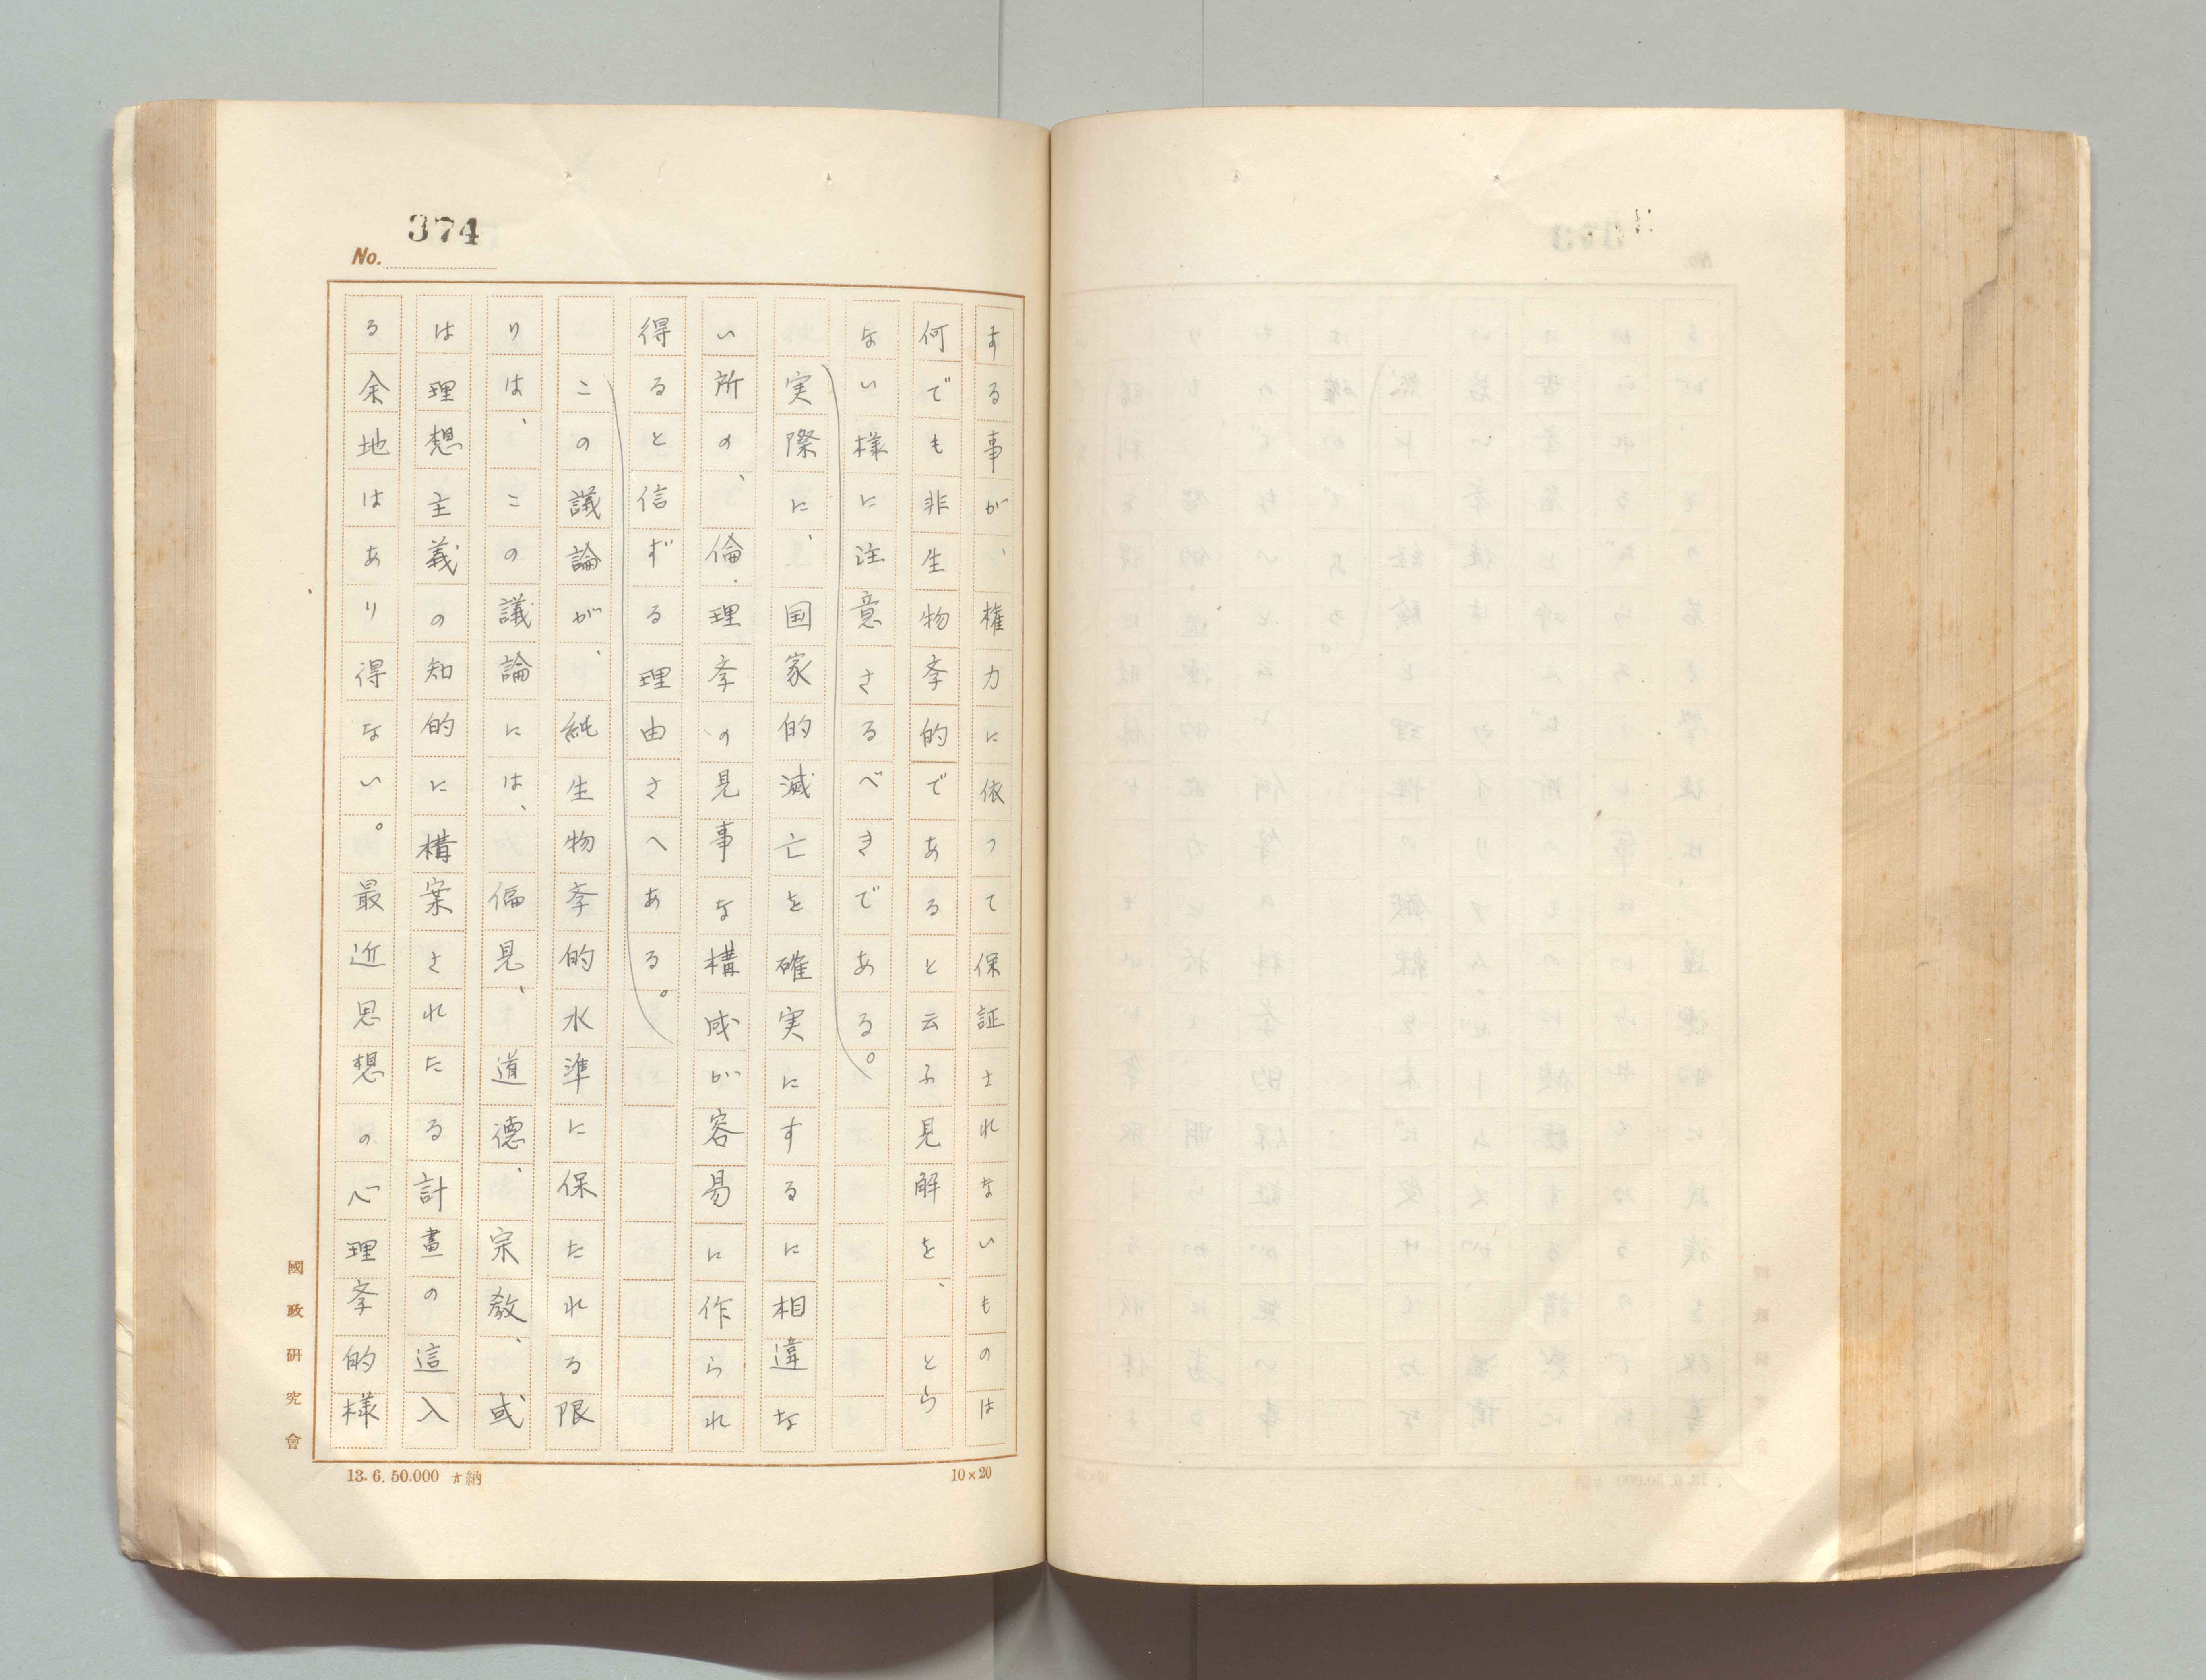 374
No.
する事が、権力に依つて保証されないものは
何でも非生物斈的であると云ふ見解を、とら
ない様に注意さるべきである。
実際に、国家的滅亡を確実にするに相違な
い所の、倫理斈の見事な構成が容易に作られ
得ると信ずる理由さへある。
この議論が、純生物斈的水準に保たれる限
りは、この議論には、偏見、道徳、宗教、或
は理想主義の知的に構案されたる計畫の這入
る余地はあり得ない。最近思想の心理斈的様
國政研究會
13.6.50.000 納
10×20